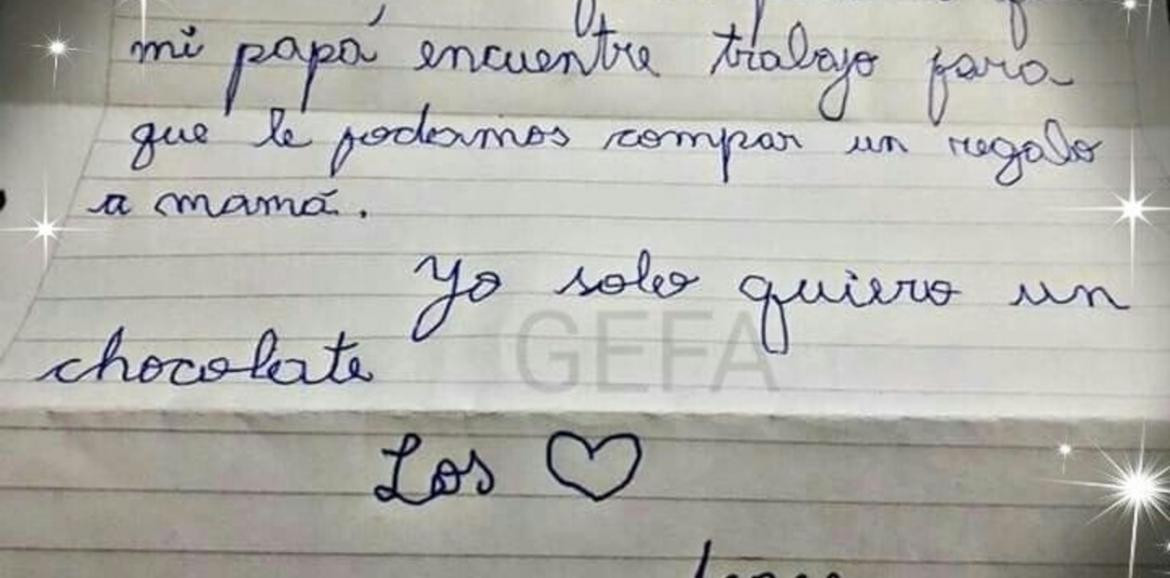 mi papá encuentre trabajo para
que le podamos compar un regalo
a mamá.
Yo solo quiero un
chocolate
GEFA
Los ♡